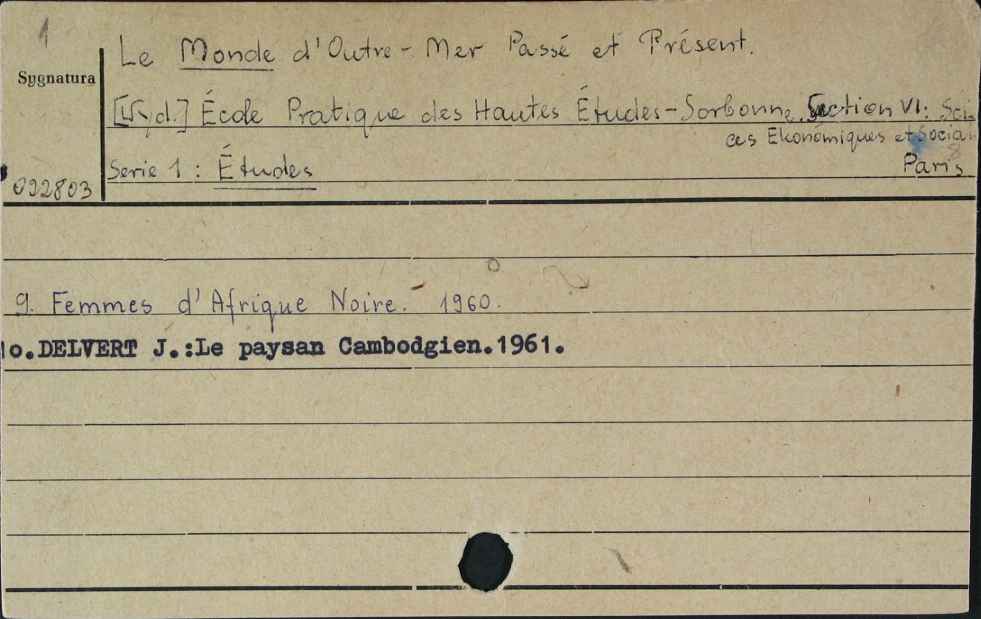 1
Le Monde d'Outre-Mer Passé et Présent.
Sygnatura
[Wyd.] École Pratique des Hautes Études-Sorbonne. Section VI: Sci-
ces Ekonómiques et Social
Serie 1: Études
Paris
022803
9. Femmes d'Afrique Noire. 1960.
10. DELVERT J.:Le paysan Cambodgien.1961.